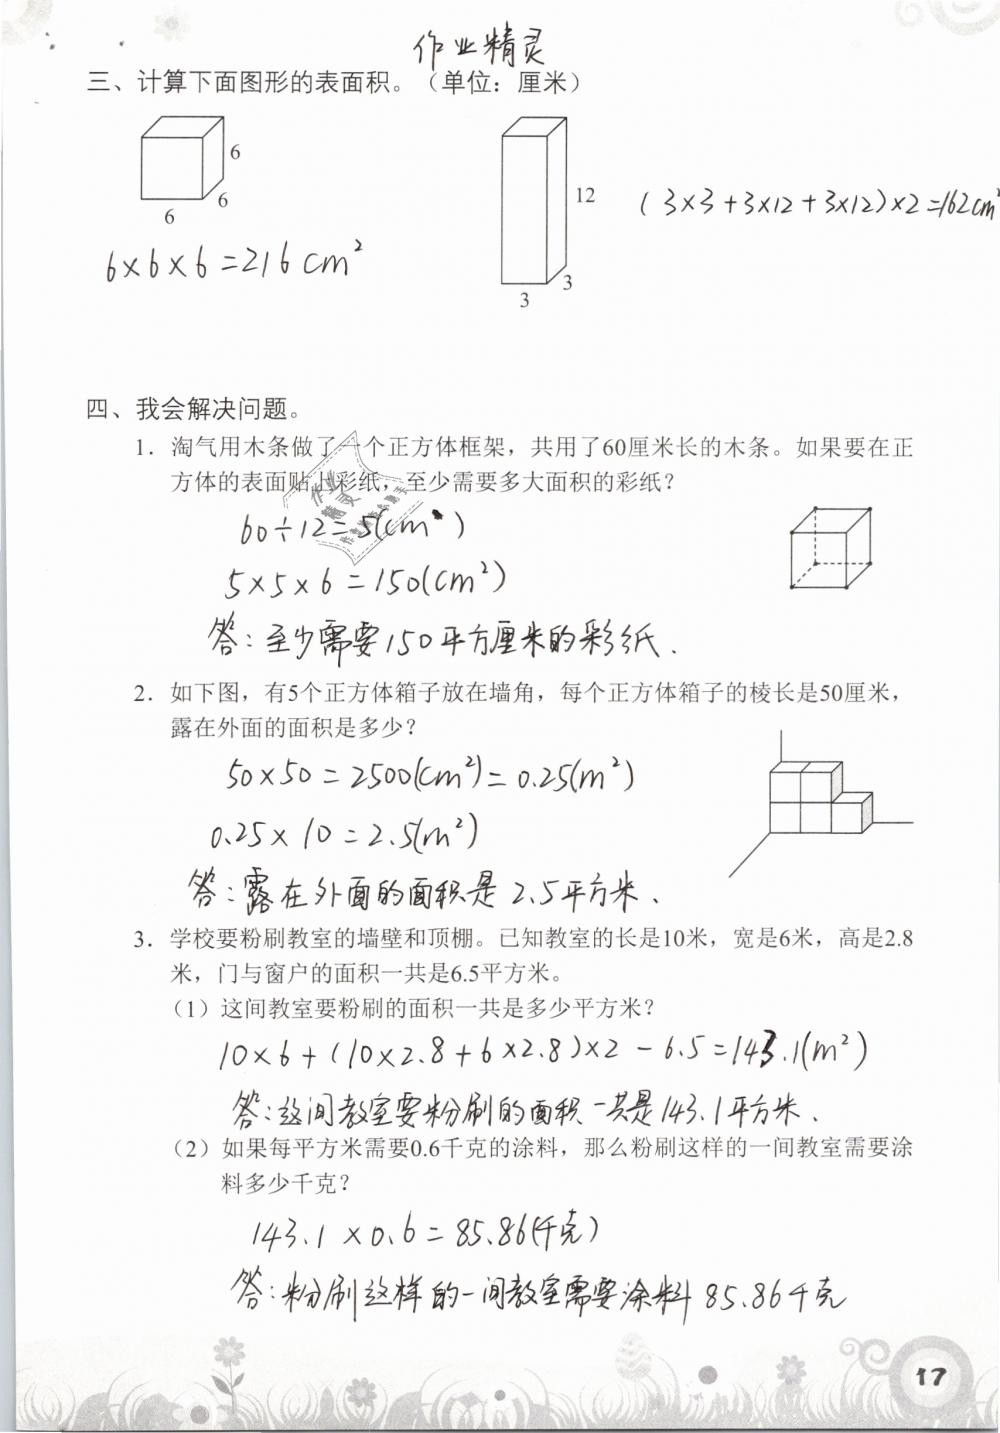 作业精灵
三、计算下面图形的表面积。（单位：厘米）
6
6
6
12
3
3
(3×3+3×12+3×12)×2=162cm²
6×6×6=216cm²
四、我会解决问题。
1. 淘气用木条做了一个正方体框架，共用了60厘米长的木条。如果要在正
方体的表面贴上彩纸，至少需要多大面积的彩纸？
作业
精灵
60÷12=5(cm)
5×5×6=150(cm²)
答：至少需要150平方厘米的彩纸.
2. 如下图，有5个正方体箱子放在墙角，每个正方体箱子的棱长是50厘米，
露在外面的面积是多少？
50×50=2500(cm²)=0.25(m²)
0.25×10=2.5(m²)
答：露在外面的面积是2.5平方米.
3. 学校要粉刷教室的墙壁和顶棚。已知教室的长是10米，宽是6米，高是2.8
米，门与窗户的面积一共是6.5平方米。
（1）这间教室要粉刷的面积一共是多少平方米？
10×6+(10×2.8+6×2.8)×2-6.5=143.1(m²)
答：这间教室要粉刷的面积一共是143.1平方米.
（2）如果每平方米需要0.6千克的涂料，那么粉刷这样的一间教室需要涂
料多少千克？
143.1×0.6=85.86(千克)
答：粉刷这样的一间教室需要涂料85.86千克
17